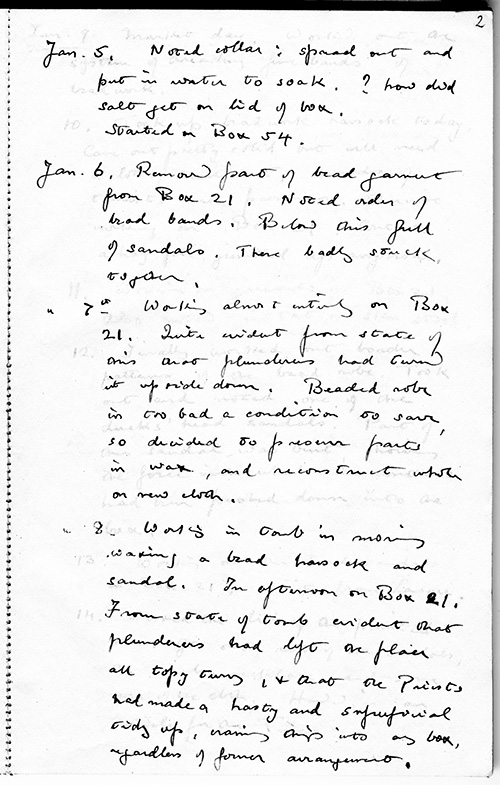 2
Jan. 5. Noted collar: spread out and
put in water to soak. ? how did
salt get on lid of box.
Started on Box 54.
Jan. 6. Removed part of bead garment
from Box 21. Noted order of
bead bands. Below this full
of sandals. These badly stuck
together.
" 7th Working almost entirely on Box
21. Quite evident from state of
this that plunderers had turned
it upside down. Beaded robe
in too bad a condition to save,
so decided to preserve parts
in wax, and reconstruct whole
on new cloth.
" 8. Working in tomb in morning
waxing a bead hassock and
sandal. In afternoon on Box 21.
From state of tomb evident that
plunderers had left the place
all topsy turvy, & that the Priests
had made a hasty and superficial
tidy up, cramming things into any box,
regardless of former arrangement.